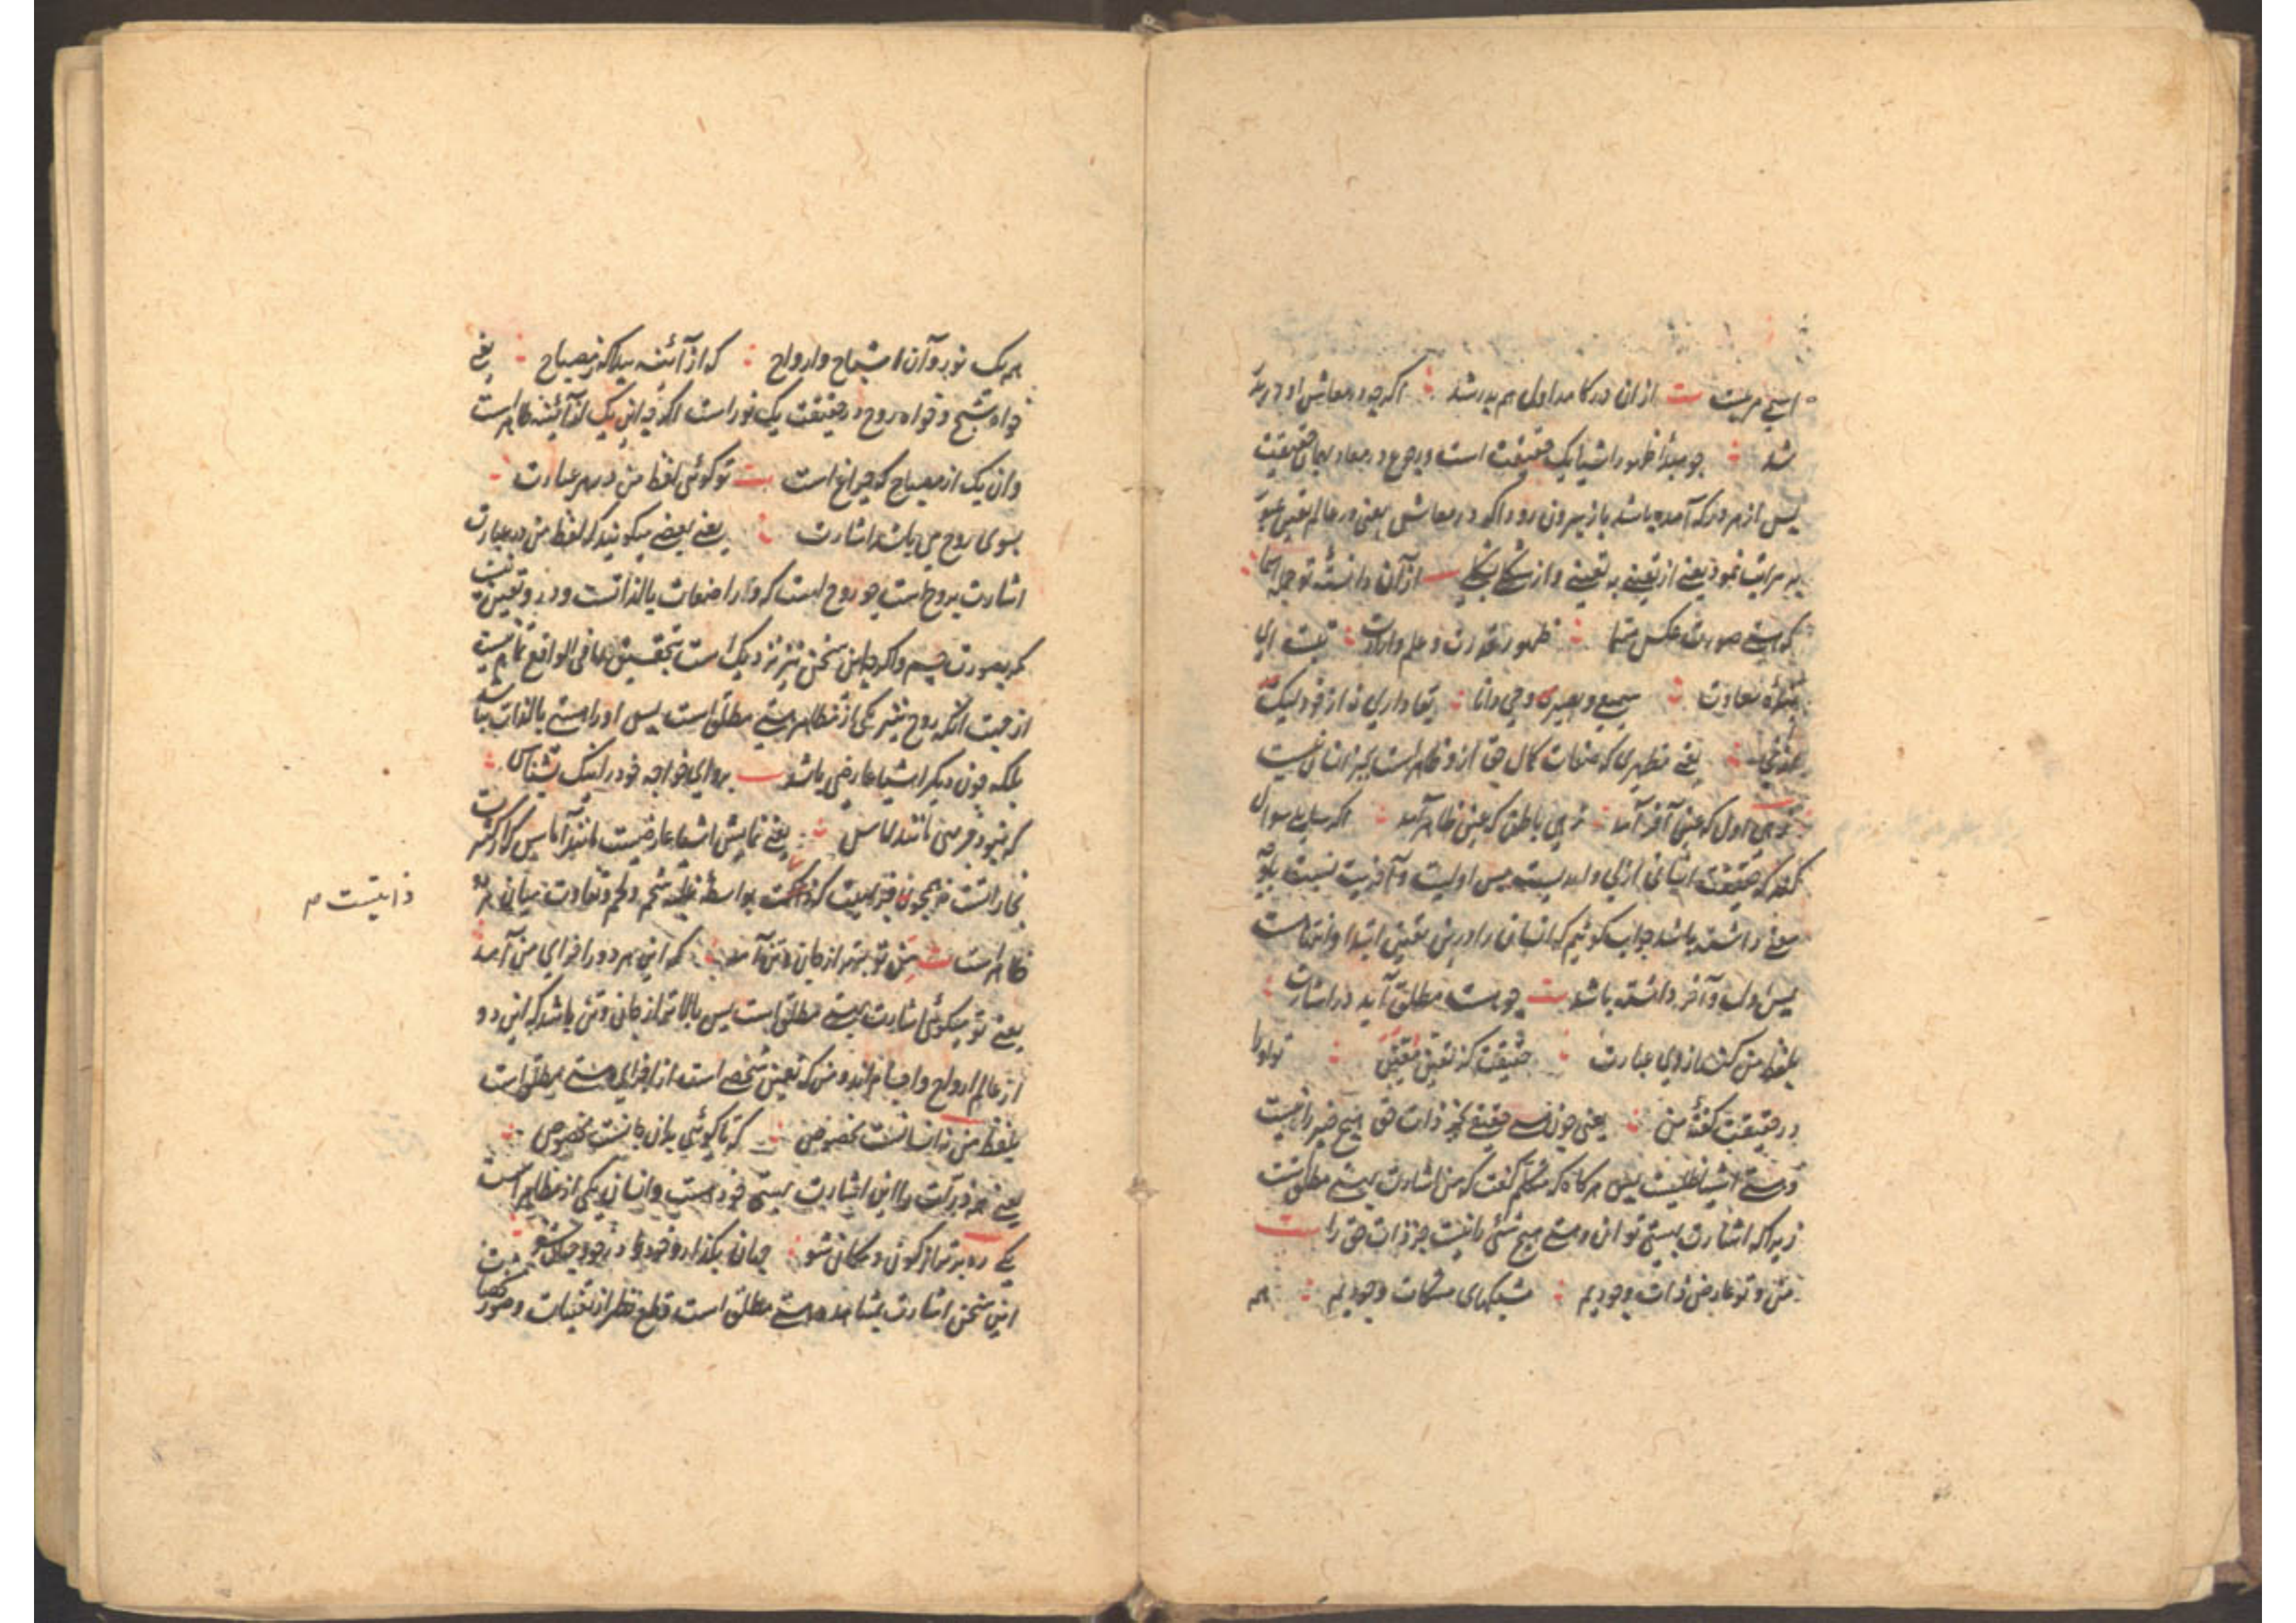 اسیے مربیت ست ازان درکامد اول هم بدر شد اکرچه در معاش او دربدر
شد چو مبدأ ظهور اشیا یک حقیقت است و رجوع در معاد بهمان حقیقت
پس از هر در که آمده باشد باز بیرون رود اکرچه در معاش یعنی در عالم تعین
بهر مراتب نمود یعنے از تعینے به تعینے و از شکلے بشکلے ازان دانستۀ تو جمله اسما
که هستے صورت عکس مسما ظهور قدرت و علم و ارادت تست ای
بندۀ سعادت سمیع و بصیری و حی و دانا بقا داری نه از خود لیک
یعنے مظهری که صفات کمال حق ازو ظاهر است بجز انسان نیست
زهی اول که عین آخر آمد زهی باطن که عین ظاهر آمد اکر سایلے سوال
کند که حقیقت انسانی ازلی و ابدیست پس اولیت و آخریت نسبت باو
معنے داشته باشد جواب کوئیم که انسان را درین تعین ابتدا و انتهاست
پس اول و آخر داشته باشد ست چو هست مطلق آید در اشارت
بلفظ من کنند از وی عبارت حقیقت کز تعین معین تو او را
در حقیقت کفتۀ من یعنی چون هستے حقیقے بجز ذات حق هیچ چیز را نیست
و هستے اشیا ظلیست پس هرکاه که متکلم کفت که من اشارت بهستے مطلق است
زیراکه اشارت بهستے توان و هستے هیچ شئ را نیست جز ذات حق را ست
من و تو عارض ذات وجودیم مشبکهای مشکات وجودیم همه
همه یک نور دان اشباح و ارواح که از آئنه پیدا که ز مصباح یعنے
خواه شبح و خواه روح در حقیقت یک نور است اکرچه این یک از آئینه ظاهر است
و ان یک از مصباح که چراغ است ست تو کوئی لفظ من در هر عبارت
بسوی روح می باشد اشارت یعنے بعضے میکویند که لفظ من در عبارت
اشارت بروح است چو روح است که او را صفات بالذاتست و در و تعین نیست
مکر بصورت جسم و اکرچه این سخن نیز نزدیک است بتحقیق اما فی الواقع تمام نیست
از جهت انکه روح نیز یکی از مظاهر هستے مطلق است پس او را هستے بالذات نباشد
بلکه چون دیکر اشیا عارضی باشد ست برو ای خواجه خود را نیک بشناس
که نبود فربهی مانند اماس یعنے نمایش اشیا عارضیست مانند آماس که از کثرت
بخاراتست نه همچون فربهیست که بواسطۀ غلبۀ شحم و لحم و تفاوت میان هر دو
ذاتیست م
ظاهر است ست من تو برتر از جان و تن آمد که این هر دو ز اجزای من آمد
یعنے تو میکوئی اشارت بهستے مطلق است پس بالاتر از جان و تن باشد که این دو
از عالم ارواح و اجسام اند و من که تعین شخصے است از اجزای هستے مطلق است
بلفظ من نه انسانست مخصوص که تا کوئی بدان جانست مخصوص
یعنے هر ذرات را این اشارت بهستی خود است و انسان یکی از مظاهر است
یکے ره برتر از کون و مکان شو جهان بکذار و خود در خود جهان شو
این سخن اشارت بمشاهدۀ هستے مطلق است قطع نظر از تعینات و صور